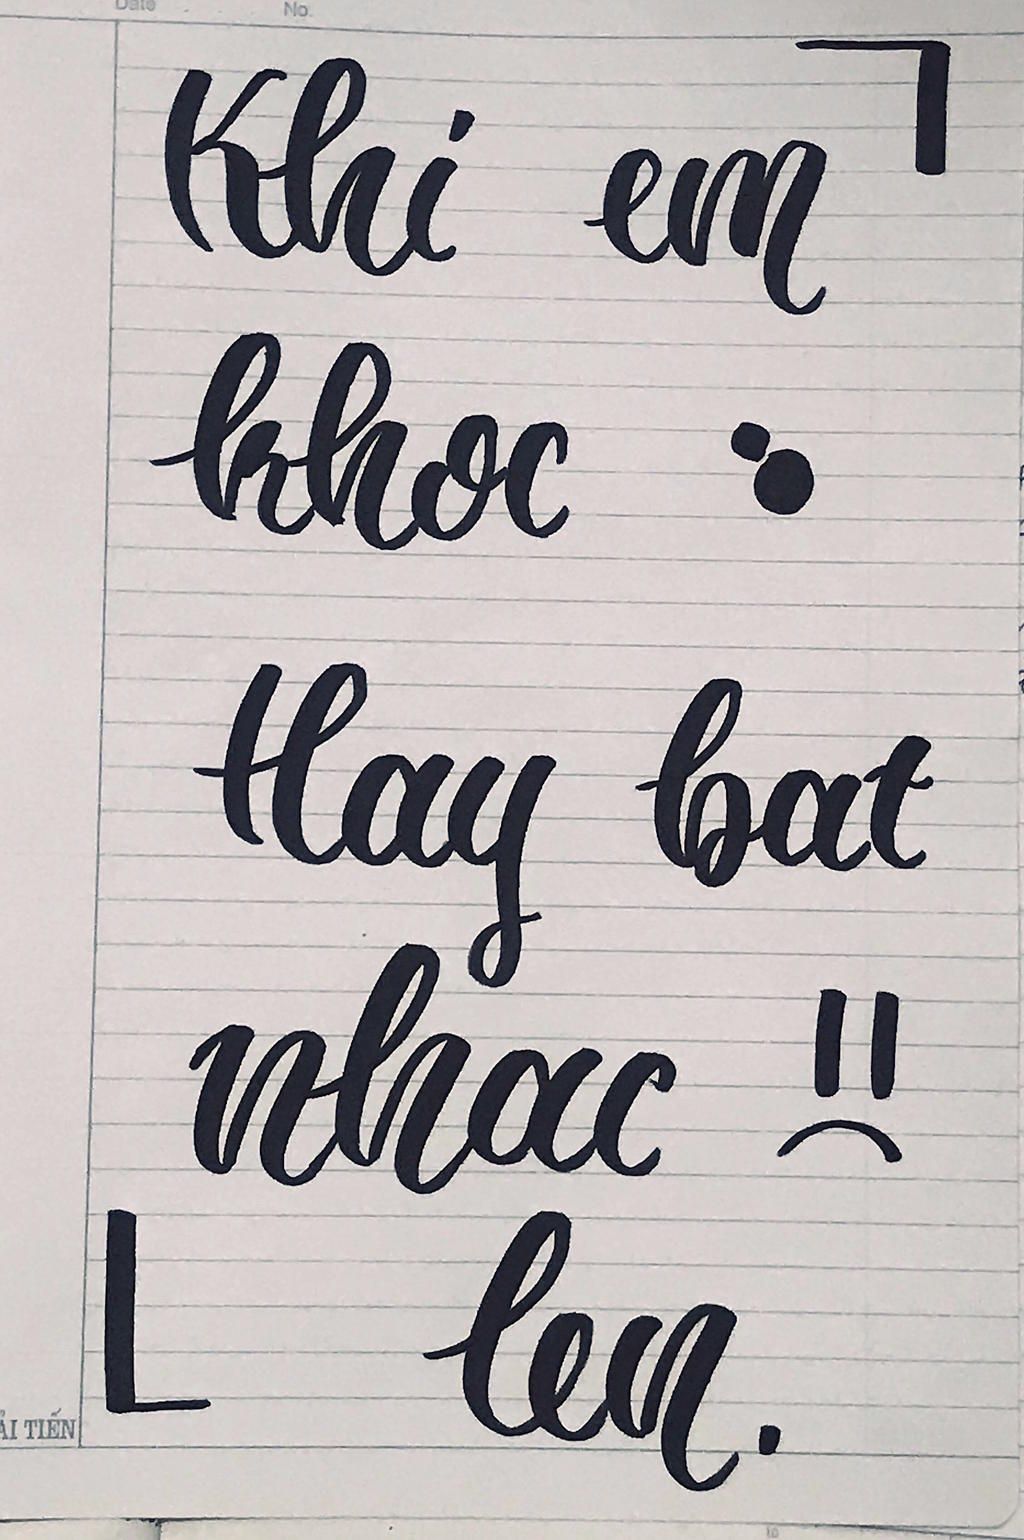 Date No
Khi em
khoc
Hay bat
nhac
len.
ẢI TIẾN